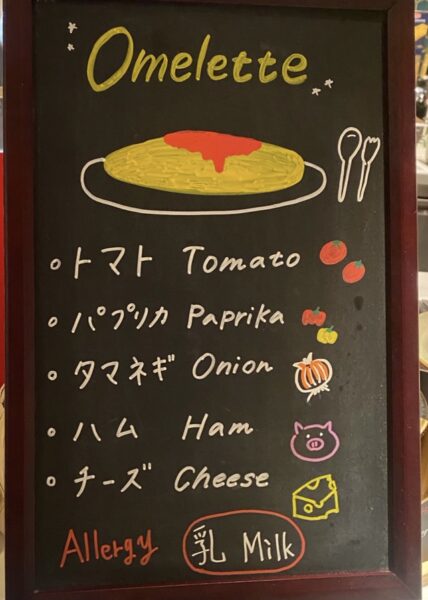 Omelette
トマト Tomato
パプリカ Paprika
タマネギ Onion
ハム Ham
チーズ Cheese
Allergy 乳 Milk